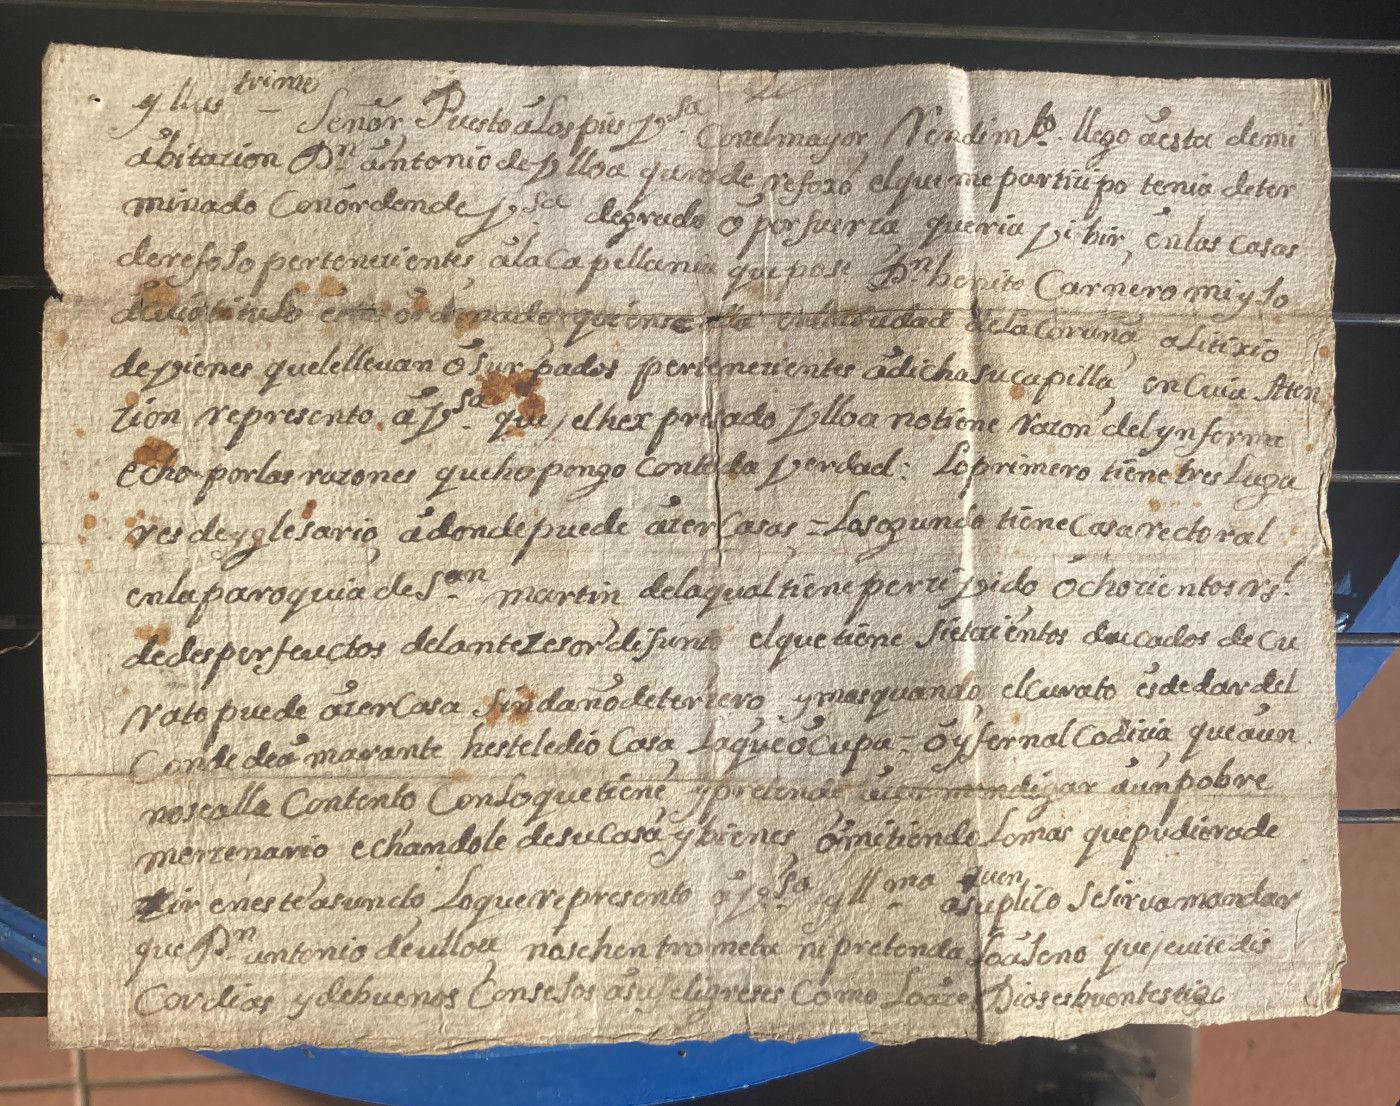 yllustrimo Señor Puesto álos pies V.sa Conelmayor Rendim.to llego áesta demi
ábitazion D.n ántonio de Vlloa qurade refoxo elque me partizipo tenia deter
minado Conórdende V.sa degrado ó porfuerza queria Vibir, enlas Casas
derefoso pertenezientes ála Capellania que pose D.n benito Carnero mi yJo
ácuiotitulo está órdenado quiense alla enlaciudad delaCoruña alitixio
deVienes quelellevan ósurpados pertenezientes ádichasucapilla, enCuia Aten
zion represento á V.sa que, elhexpresado Vlloa notiene razon del ynforme
echo porlas razones quehespongo Contoda Verdad: Loprimero tiene tres Luga
res deyglesario, ádondepuede ázerCasas = Losegundo tieneCasarectoral
enlaparoquia deS.an martin delaqualtiene perziVido óchozientos rs.l
dedesperfeuctos delantezesor difunto elquetiene Sietezientos ducados de Cu
rato puede ázerCasa Sindaño deterzero ymasquando, elCurato esdedardel
Conde deámarante hesteledio Casa Laqueócupa = óynfernalCodizia queáun
noseallá Contento Conloquetiene, ypretende ázer mendigar áunpobre
merzenario echandole desuCasa ybienes ómitiendo Lomas quepudierade
zir enesteasuncto Loquerepresento á V.sa yll.ma áquen suplico Sesirva mandar
que D.n antonio deulloa nosehentrometa nipretenda Loáseno queJevitedis
Cordias ydebuenos ConseJos ásusfeligreses Como Loáze Diosesbuentestigo